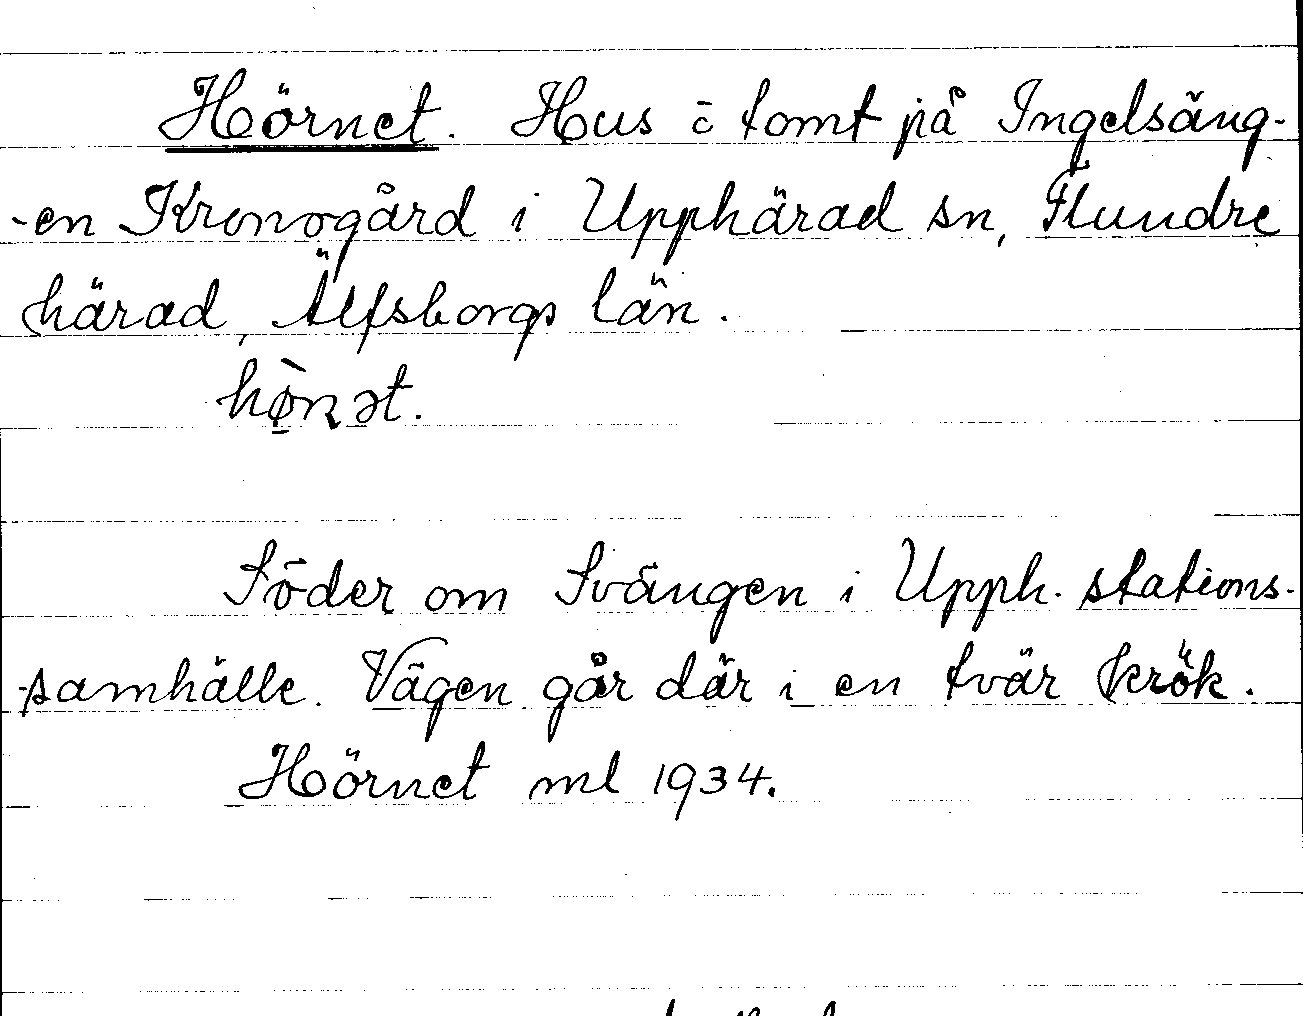 Hörnet. Hus o tomt på Ingelsäng-
-en Kronogård i Upphärad sn, Flundre
härad, Älfsborgs län.
Söder om Svängen i Upph. stations-
-samhälle. Vägen går där i en tvär krök.
Hörnet ml 1934.